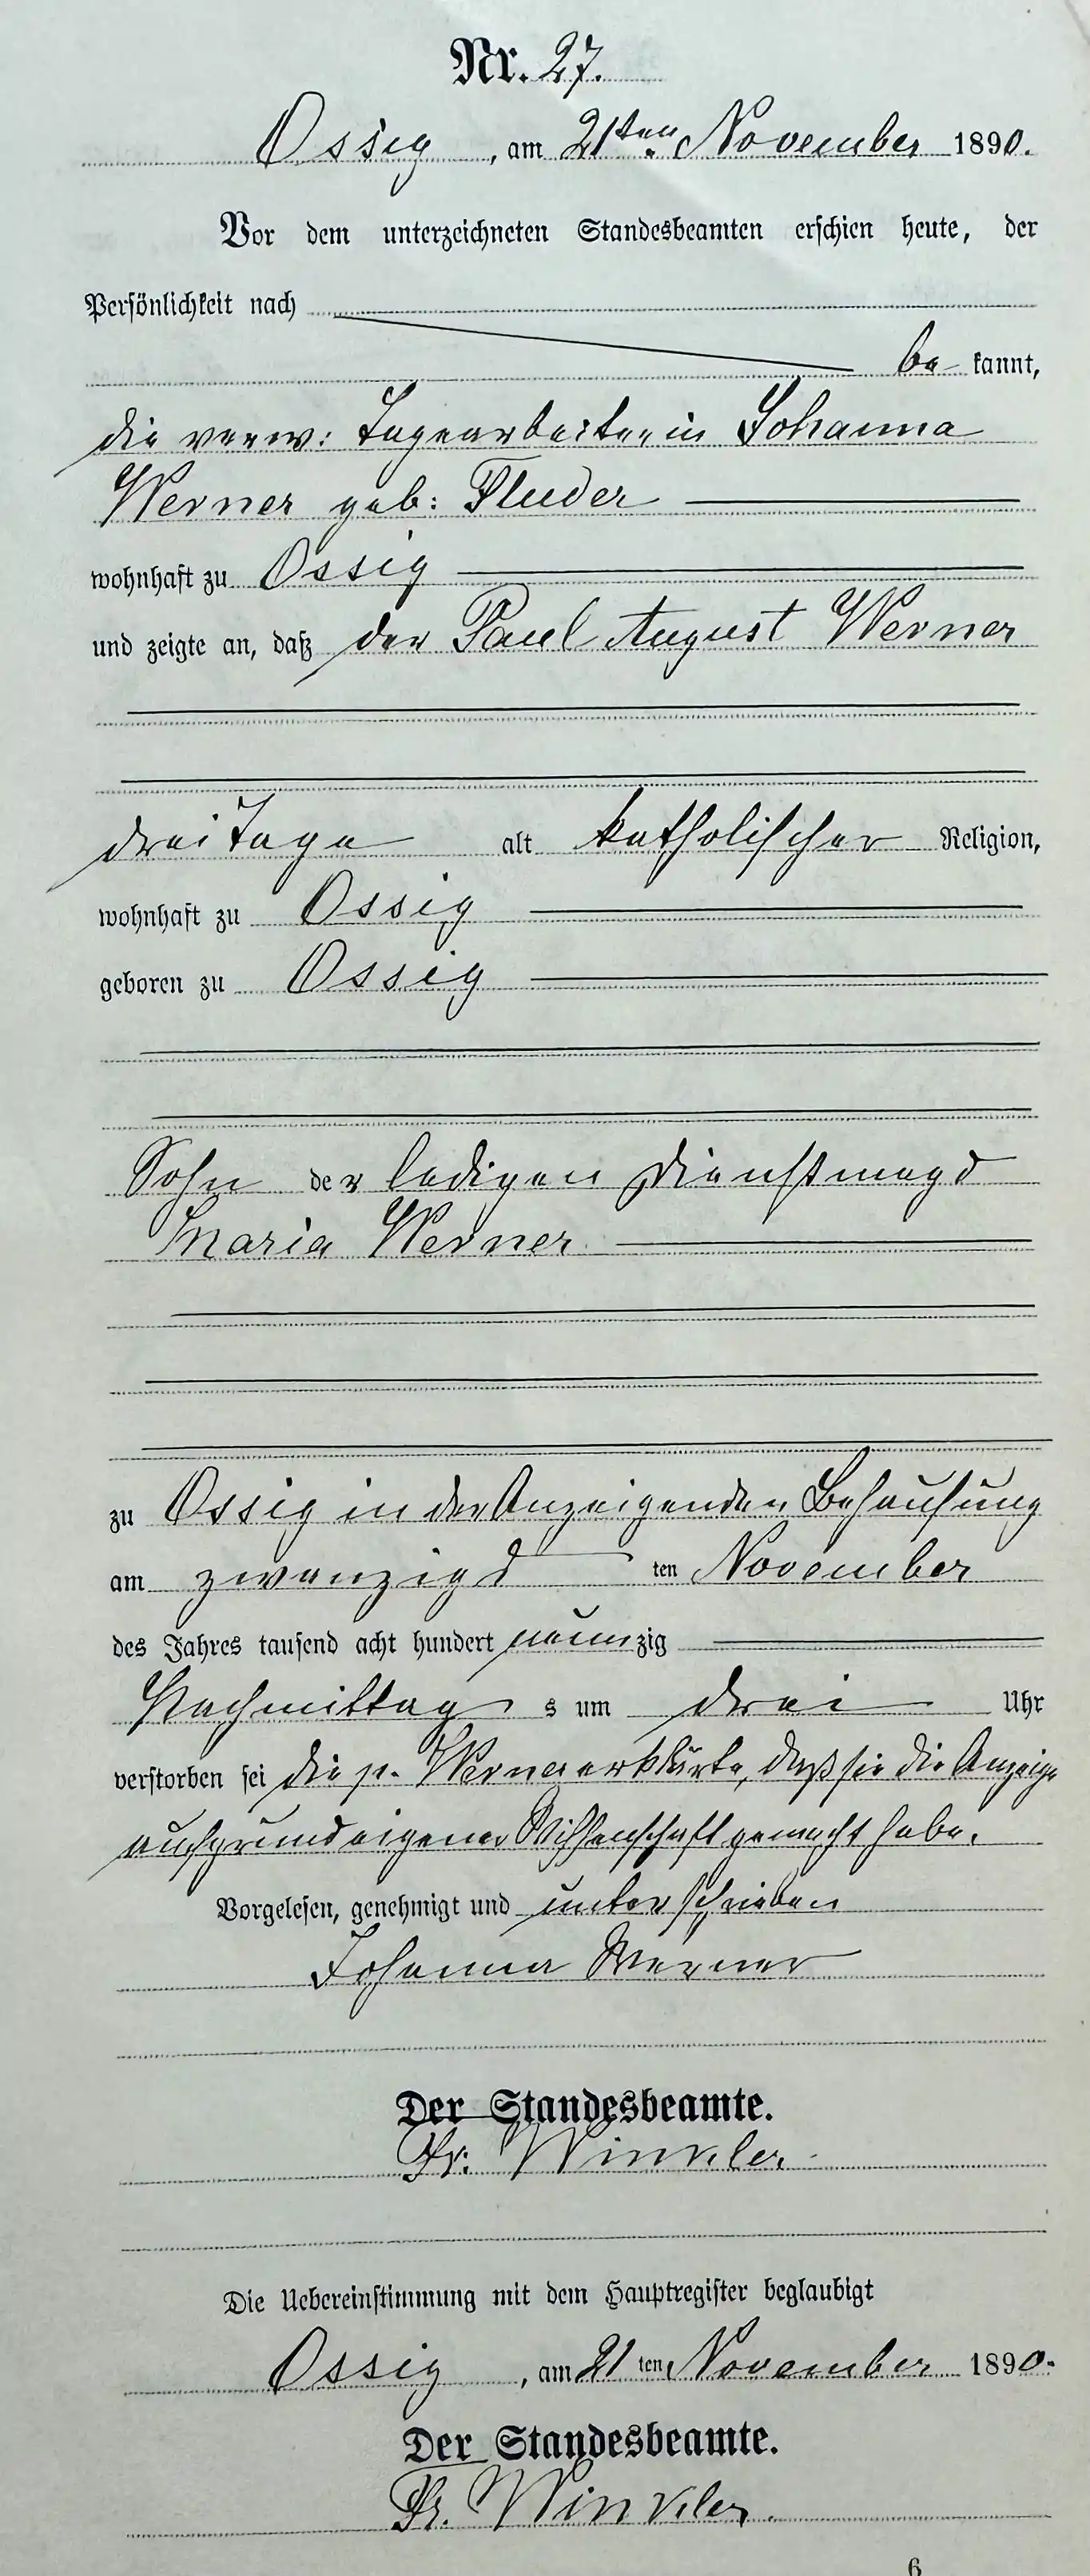 Nr. 27.
Ossig, am 21ten November 1890.
Vor dem unterzeichneten Standesbeamten erschien heute, der
Persönlichkeit nach
be kannt,
die verw: Tagearbeiterin Johanna
Werner geb: Fluder
wohnhaft zu Ossig
und zeigte an, daß der Paul August Werner
drei Tage alt katholischer Religion,
wohnhaft zu Ossig
geboren zu Ossig
Sohn der ledigen Dienstmagd
Maria Werner
zu Ossig in der Anzeigenden Behausung
am zwanzigs ten November
des Jahres tausend acht hundert neunzig
Nachmittag s um drei Uhr
verstorben sei die p. Werner erklärte, daß sie die Anzeige
auf grund eigener Wissenschaft gemacht habe.
Vorgelesen, genehmigt und unterschrieben
Johanna Werner
Der Standesbeamte.
Fr. Winkler
Die Uebereinstimmung mit dem Hauptregister beglaubigt
Ossig, am 21 ten November 1890.
Der Standesbeamte.
Fr. Winkler.
6